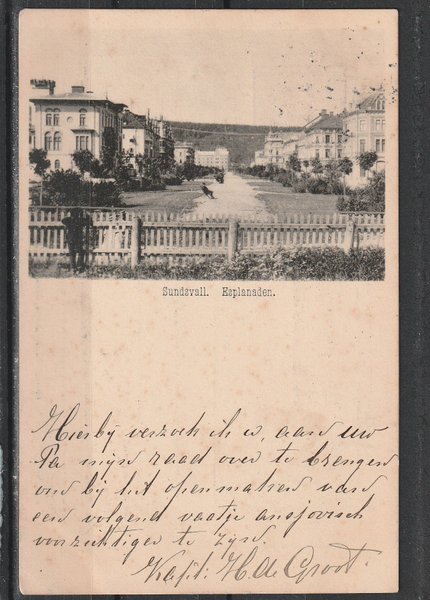 Sundsvall. Esplanaden.
Hierbij verzoek ik u, aan uw
Pa mijn raad over te brengen
om bij het openmaken van
een volgend vaatje ansjovisch
voorzichtiger te zijn
Kapt: H. de Groot.